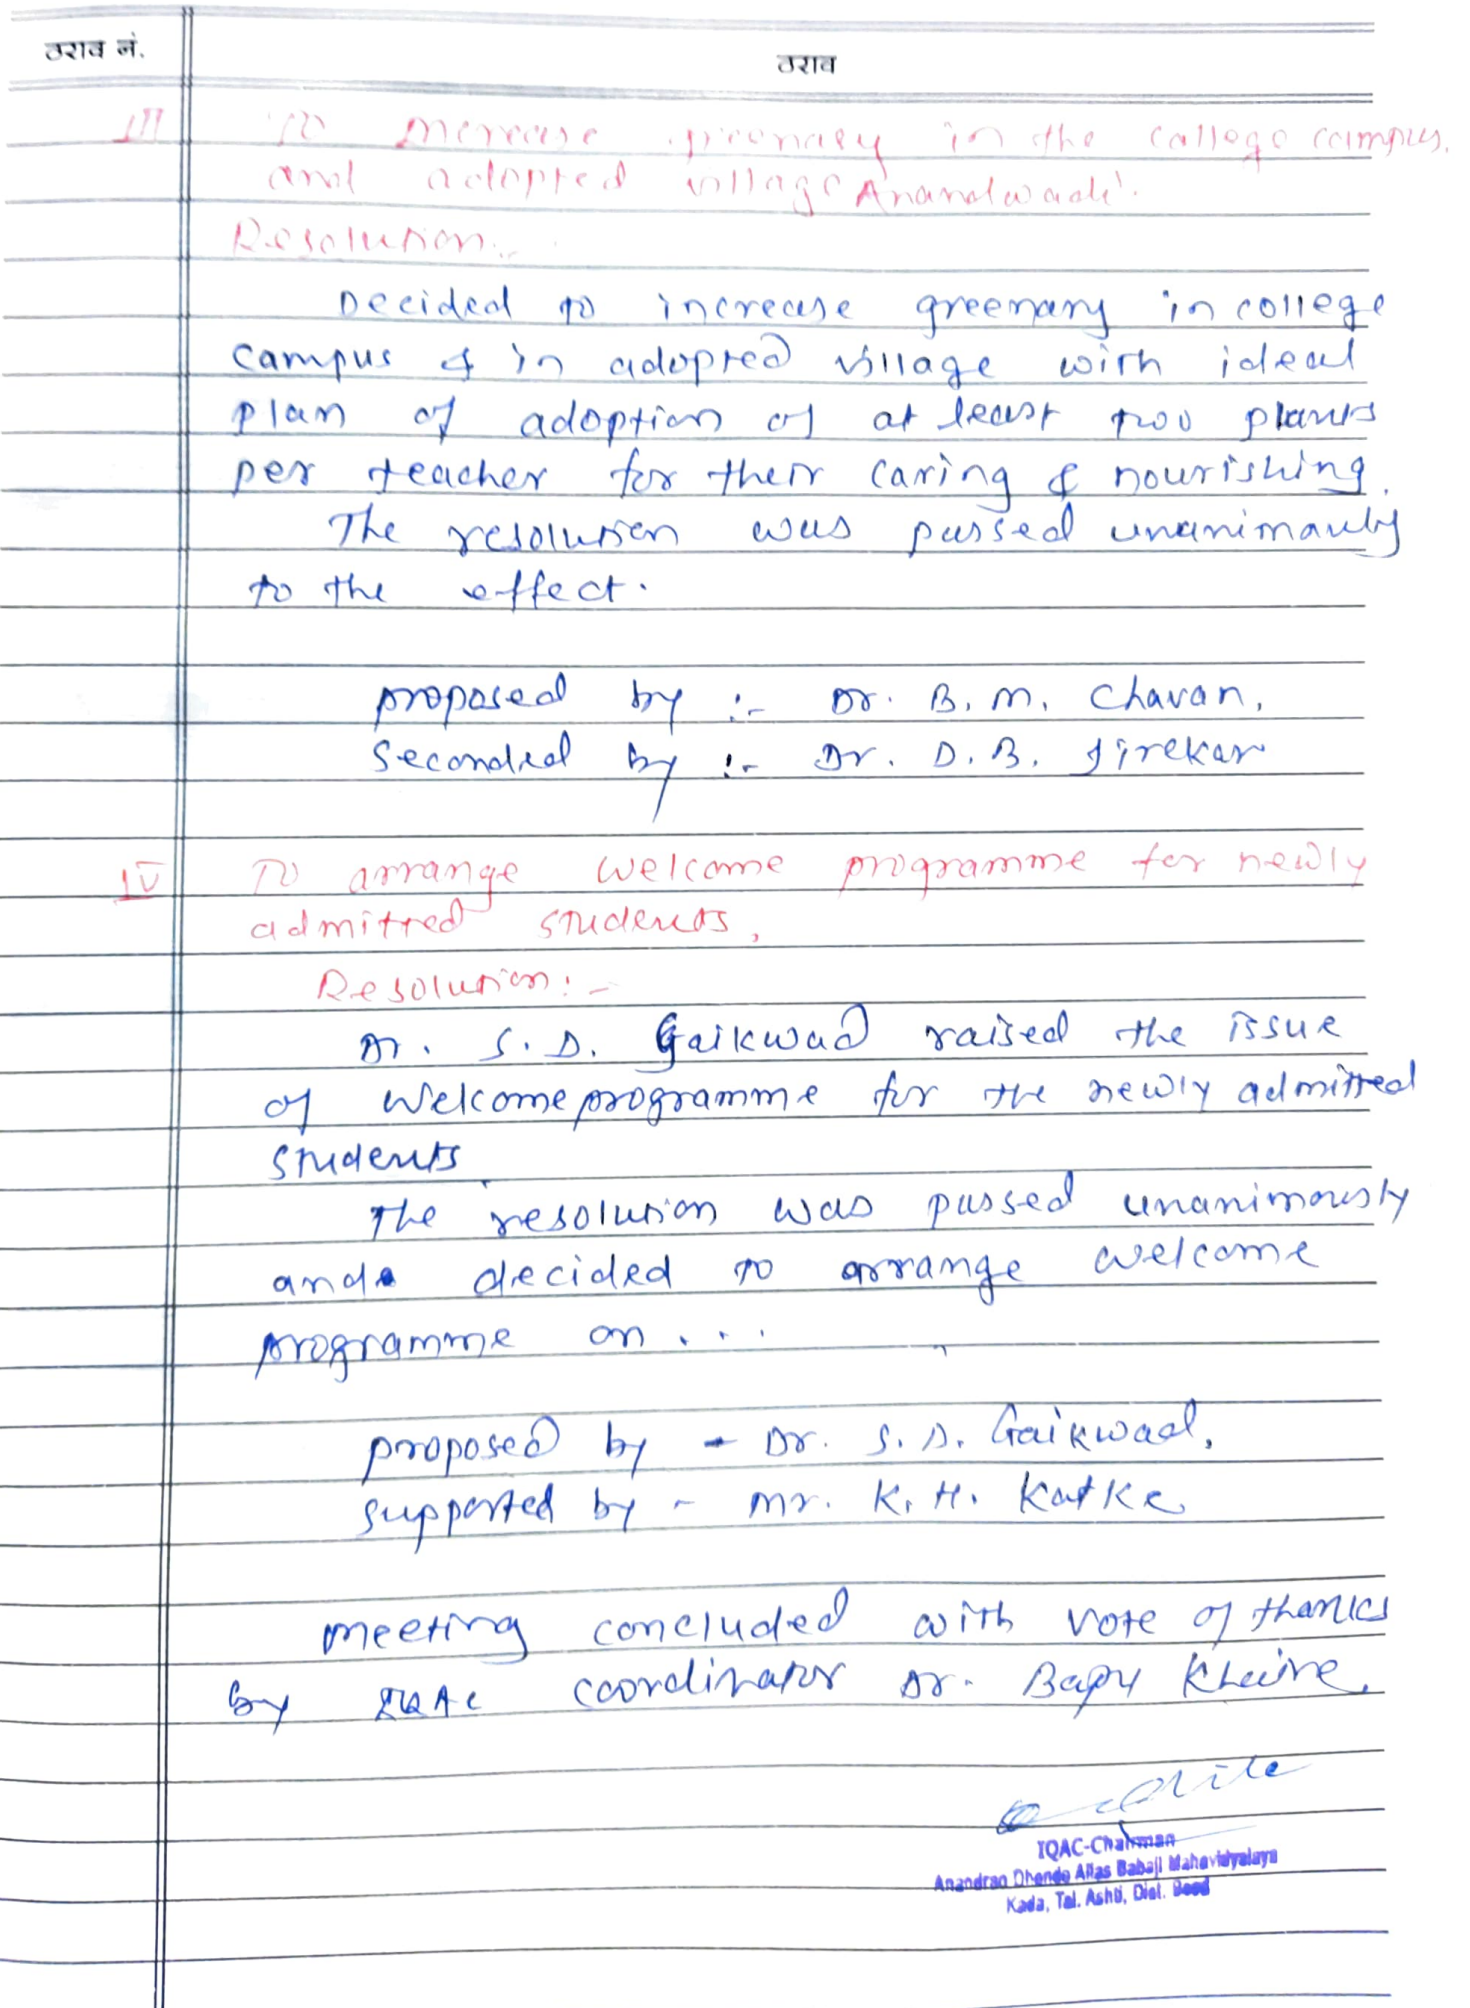 ठराव नं.
ठराव
III To increase greenary in the college campus,
and adopted village Anandwadi.
Resolution:-
Decided to increase greenary in college
campus & in adopted village with ideal
plan of adoption of at least two plants
per teacher for their caring & nourishing.
The resolution was passed unanimously
to the effect.
proposed by :- Dr. B. M. Chavan,
Seconded by :- Dr. D. B. Jirekar
IV To arrange welcome programme for newly
admitted students,
Resolution:-
Dr. S. D. Gaikwad raised the issue
of welcome programme for the newly admitted
students
The resolution was passed unanimously
and decided to arrange welcome
programme on . . .
proposed by - Dr. S. D. Gaikwad,
supported by - Mr. K. H. Katke
Meeting concluded with vote of thanks
by IQAC coordinator Dr. Bapu Khaire,
IQAC-Chairman
Anandrao Dhonde Alias Babaji Mahavidyalaya
Kada, Tal. Ashti, Dist. Beed